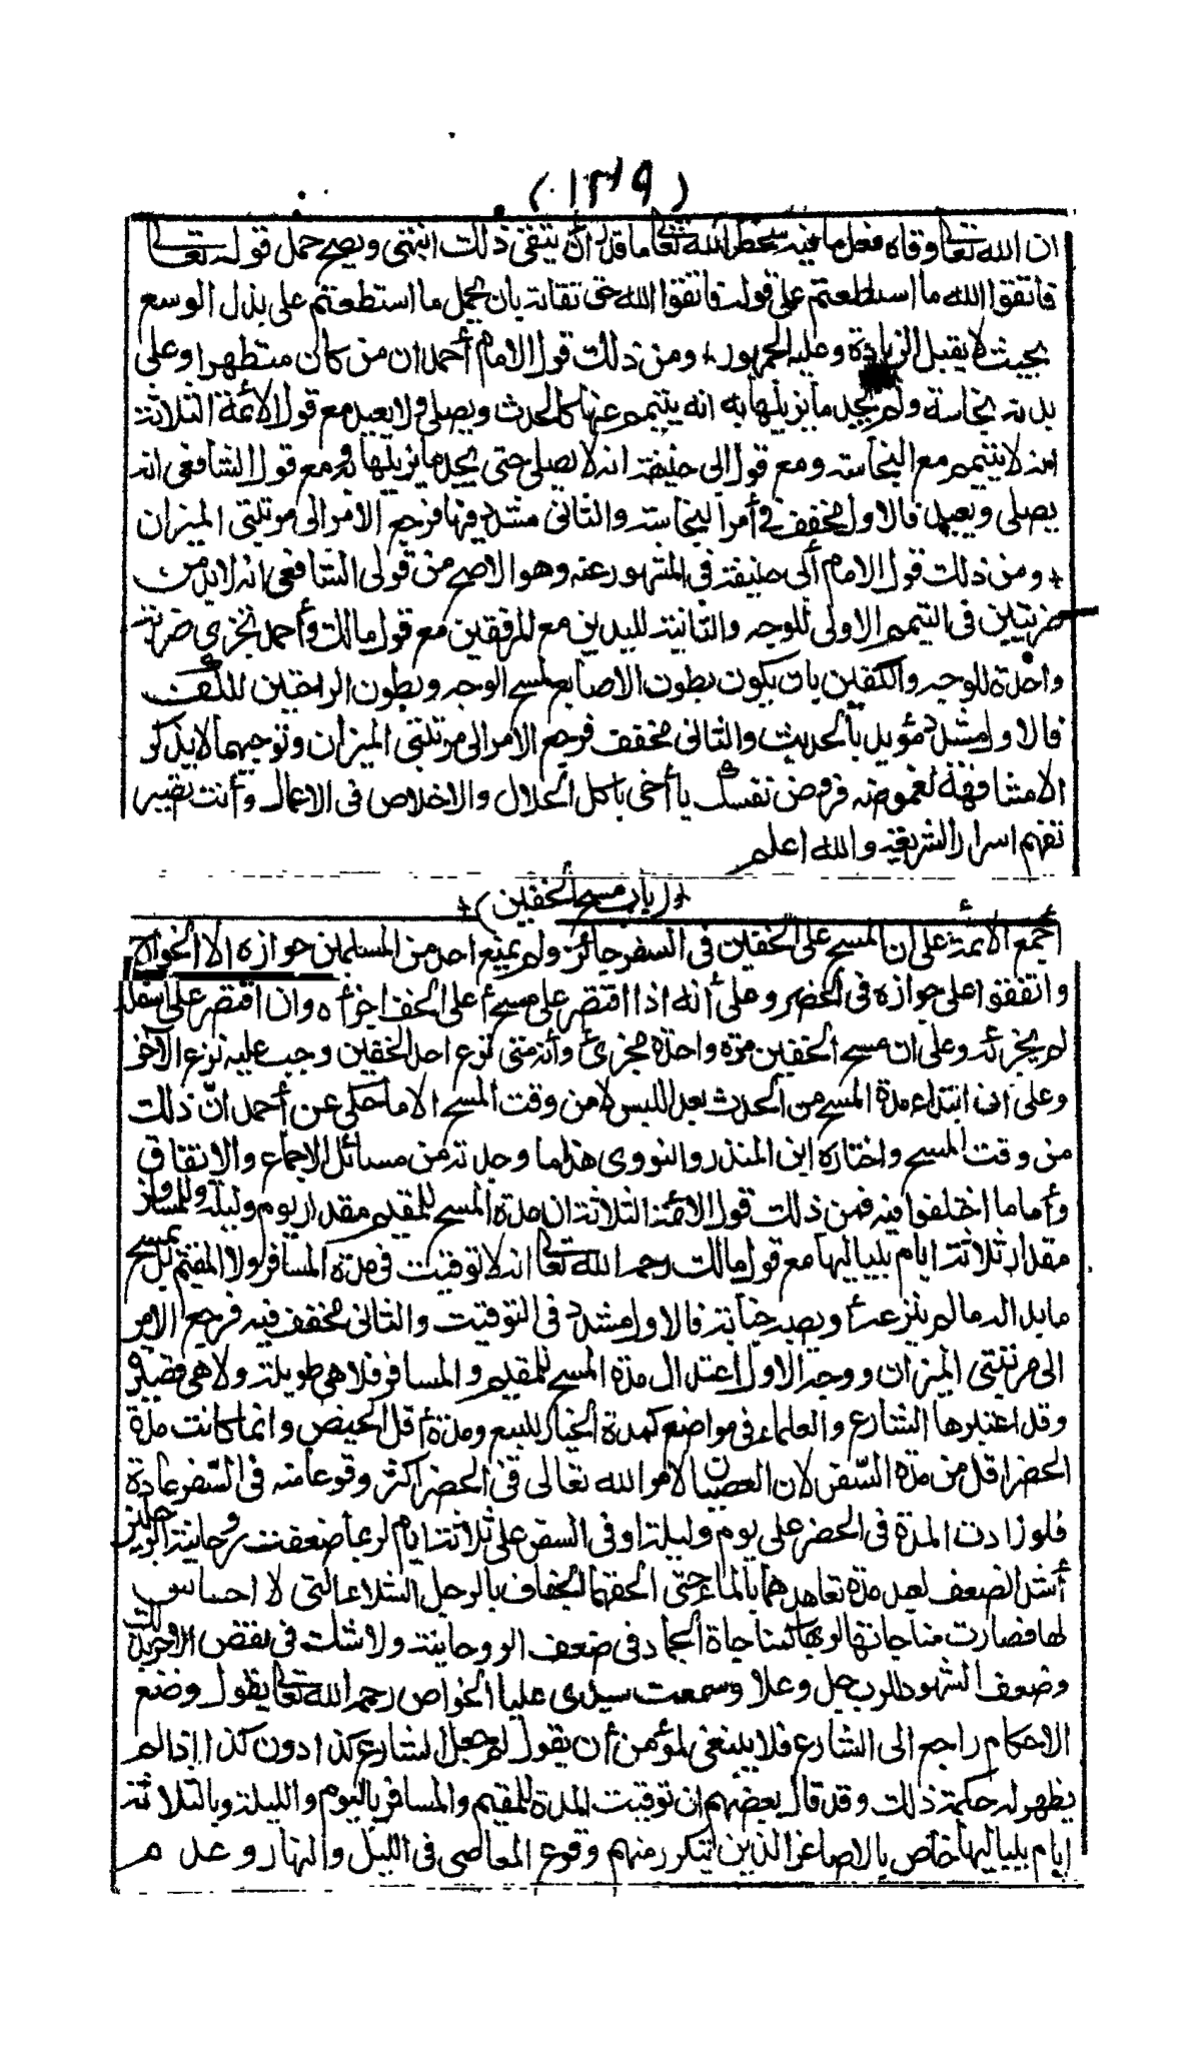 (١٢٩)
ان الله تعالى وقاه فعل ما فيه سخط الله تعالى ما قدر ان يتقى ذلك انتهى ويصح حمل قوله تعالى
فاتقوا الله ما استطعتم على قوله فاتقوا الله حق تقاته بان يحمل ما استطعتم على بذل الوسع
بحيث لا يقبل الزيادة وعليه الجمهور * ومن ذلك قول الامام أحمد ان من كان متطهرا وعلى
بدنه نجاسة ولم يجد ما يزيلها به انه يتيمم عنها كالحدث ويصلى ولا يعيد مع قول الأئمة الثلاثة
انه لا يتيمم مع النجاسة ومع قول ابى حنيفة انه لا يصلى حتى يجد ما يزيلها به ومع قول الشافعى انه
يصلى ويعيد فالاول مخفف فى أمر النجاسة والثانى مشدد فيها فرجع الامر الى مرتبتى الميزان
* ومن ذلك قول الامام أبى حنيفة فى المشهور عنه وهو الاصح من قولى الشافعى انه لابد من
ضربتين فى التيمم الاولى للوجه والثانية لليدين مع المرفقين مع قول مالك وأحمد تجزى ضربة
واحدة للوجه والكفين بان يكون بطون الاصابع لمسح الوجه وبطون الراحتين للكف
فالاول مشدد مؤيد بالحديث والثانى مخفف فرجع الامر الى مرتبتى الميزان وتوجيهما لا يذكر
الا مشافهة لغموضه فروض نفسك يا أخى باكل الحلال والاخلاص فى الاعمال وأنت تصير
تفهم اسرار الشريعة والله اعلم
*(باب مسح الخفين)*
أجمع الأئمة على ان المسح على الخفين فى السفر جائز ولم يمنع احد من المسلمين جوازه الا الخوارج
واتفقوا على جوازه فى الحضر وعلى أنه اذا اقتصر على مسح أعلى الخف اجزأه وان اقتصر على اسفله
لم يجزئه وعلى ان مسح الخفين مرة واحدة مجزئ وأنه متى نزع احد الخفين وجب عليه نزع الآخر
وعلى ان ابتداء مدة المسح من الحدث بعد اللبس لا من وقت المسح الا ما حكى عن أحمد انّ ذلك
من وقت المسح واختاره ابن المنذر والنووى هذا ما وجدته من مسائل الاجماع والاتفاق
وأما ما اختلفوا فيه فمن ذلك قول الائمة الثلاثة ان مدة المسح للمقيم مقدار يوم وليلة وللمسافر
مقدار ثلاثة ايام بلياليها مع قول مالك رحمه الله تعالى انه لا توقيت فى مدة المسافر ولا المقيم بل يمسح
ما بدا له ما لم ينزعه أو يصبه جنابة فالاول مشدد فى التوقيت والثانى مخفف فيه فرجع الامر
الى مرتبتى الميزان ووجه الاول اعتدال مدة المسح للمقيم والمسافر فلا هى طويلة ولا هى قصيرة
وقد اعتبرها الشارع والعلماء فى مواضع كمدة الخيار للبيع ومدة أقل الحيض وانما كانت مدة
الحضر اقل من مدة السّفر لان العصيان لامر الله تعالى فى الحضر اكثر وقوعا منه فى السّفر عادة
فلو زادت المدة فى الحضر على يوم وليلة او فى السفر على ثلاثة ايام لربما ضعفت روحانية الرجلين
أشد الضعف لعدم مدة تعاهدهما بالماء حتى الحقهما الجفاف بالرجل الشلاء التى لا احساس
لها فصارت مناجاتها لربها كمناجاة الجماد فى ضعف الروحانية ولا شك فى نقص الاجر بذلك
وضعف الشهود للرب جل وعلا وسمعت سيدى عليا الخواص رحمه الله تعالى يقول وضع
الاحكام راجع الى الشارع فلا ينبغى لمؤمن أن يقول لم جعل الشارع كذا دون كذا اذا لم
يظهر له حكمة ذلك وقد قال بعضهم ان توقيت المدة للمقيم والمسافر باليوم والليلة وبالثلاثة
ايام بلياليها خاص بالاصاغر الذين يتكرر منهم وقوع المعاصى فى الليل والنهار وعدم